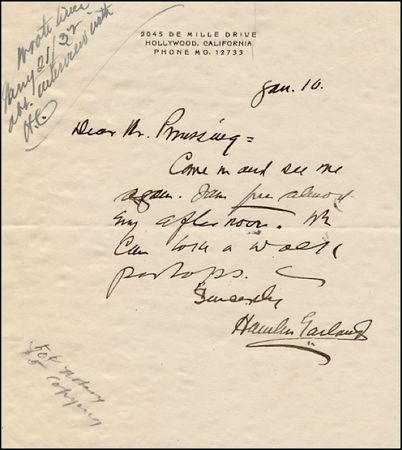 2045 DE MILLE DRIVE
HOLLYWOOD, CALIFORNIA
PHONE MO. 12733
Wrote him
Jan'y 21/32
abt. interview with
H.G.
Jan. 10.
Dear Mr. Prussing =
Come in and see me
again. I am free almost
any afternoon. We
can take a walk
perhaps.
Sincerely
Hamlin Garland
for
copying